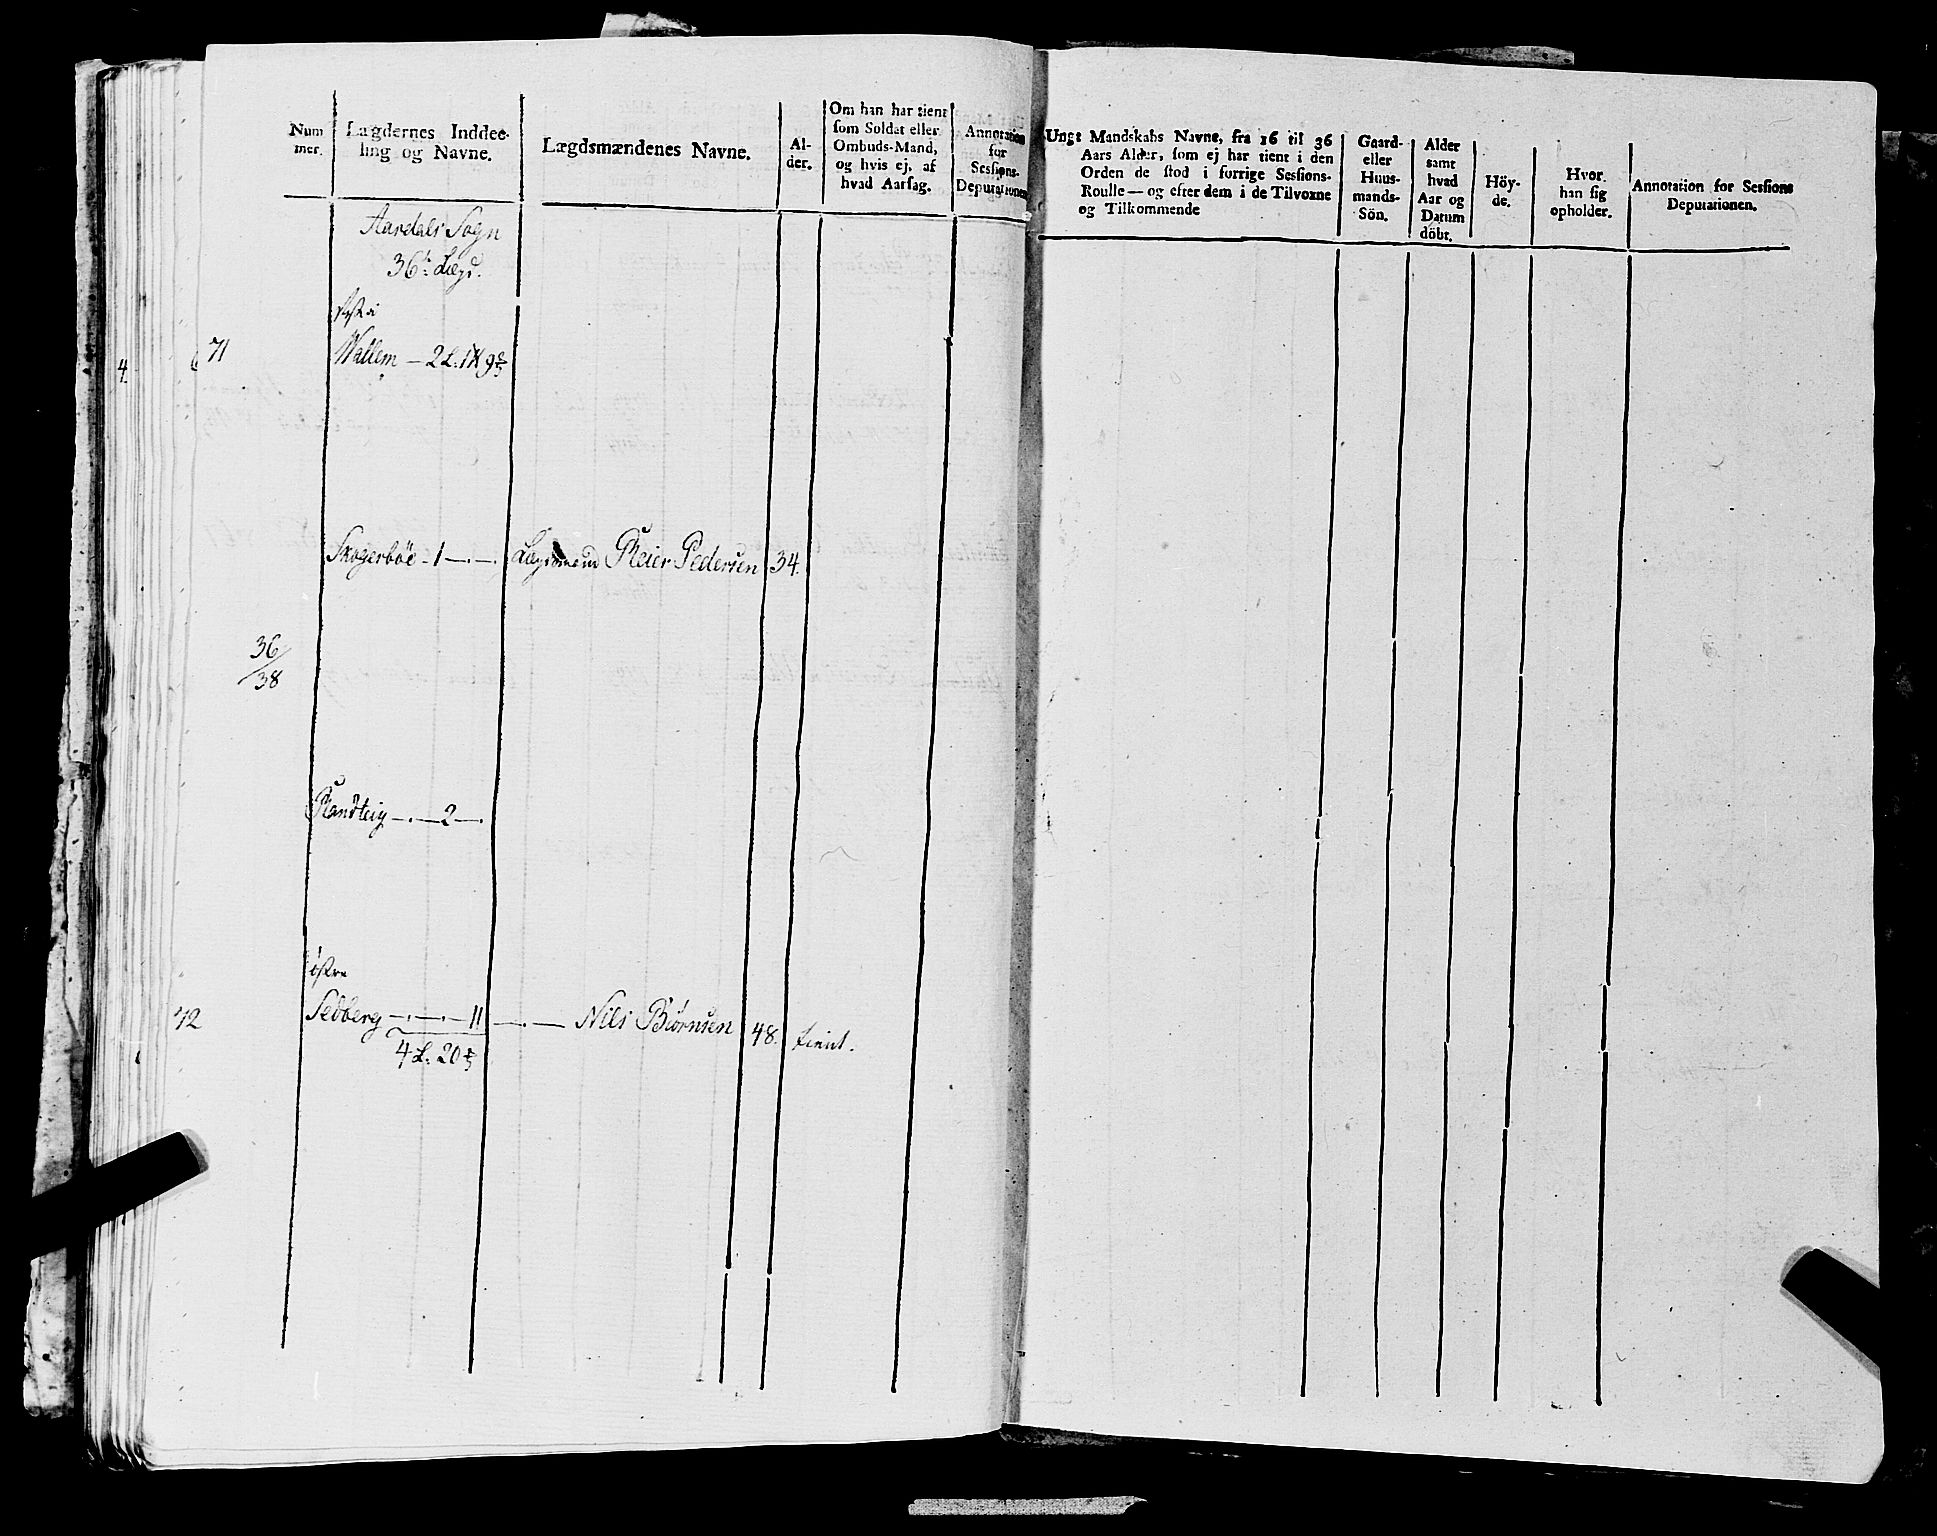 Num
mer.
Lægdernes Inddee-
ling og Navne.
Lægdsmændenes Navne.
Al-
der.
Om han har tient
som Soldat eller
Ombuds-Mand,
og hvis ej, af
hvad Aarsag.
Annotation
for
Sessions-
Deputationen
Ungt Mandskabs Navne, fra 16 til 36
Aars Alder, som ej har tient i den
Orden de stod i forrige Sessions-
Roulle — og efter dem i de Tilvoxne
og Tilkommende
Gaard-
eller
Huus-
mands-
Sön.
Alder
samt
hvad
Aar og
Datum
döbt.
Höy-
de.
Hvor
han sig
opholder.
Annotation for Sessions
Deputationen.
Aardals Sogn
36: Lægd.
71
Wallem — 2 L: 1
4
Skogerböe - 1 —.—. Lægdsmand Reier Pedersen 34.
36/38
Randteig —.— 2 —.
östre
72 Sedberg —.—.— 11 —.— Nils Biörnsen 48. tient.
4 L: 20